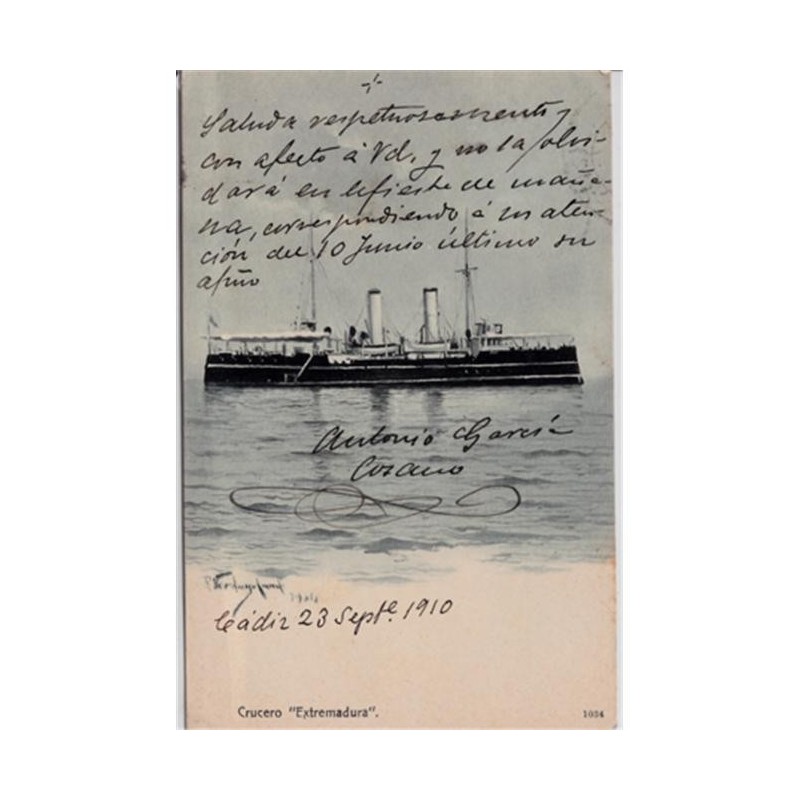 Saluda respetuosamente y
con afecto á Vd, y no la olvi-
dará en la fiesta de maña-
na, correspondiendo á su aten-
ción del 10 Junio último su
afmo
Antonio García
Cozano
1904
Cádiz 23 Septe. 1910
Crucero "Extremadura".
1034